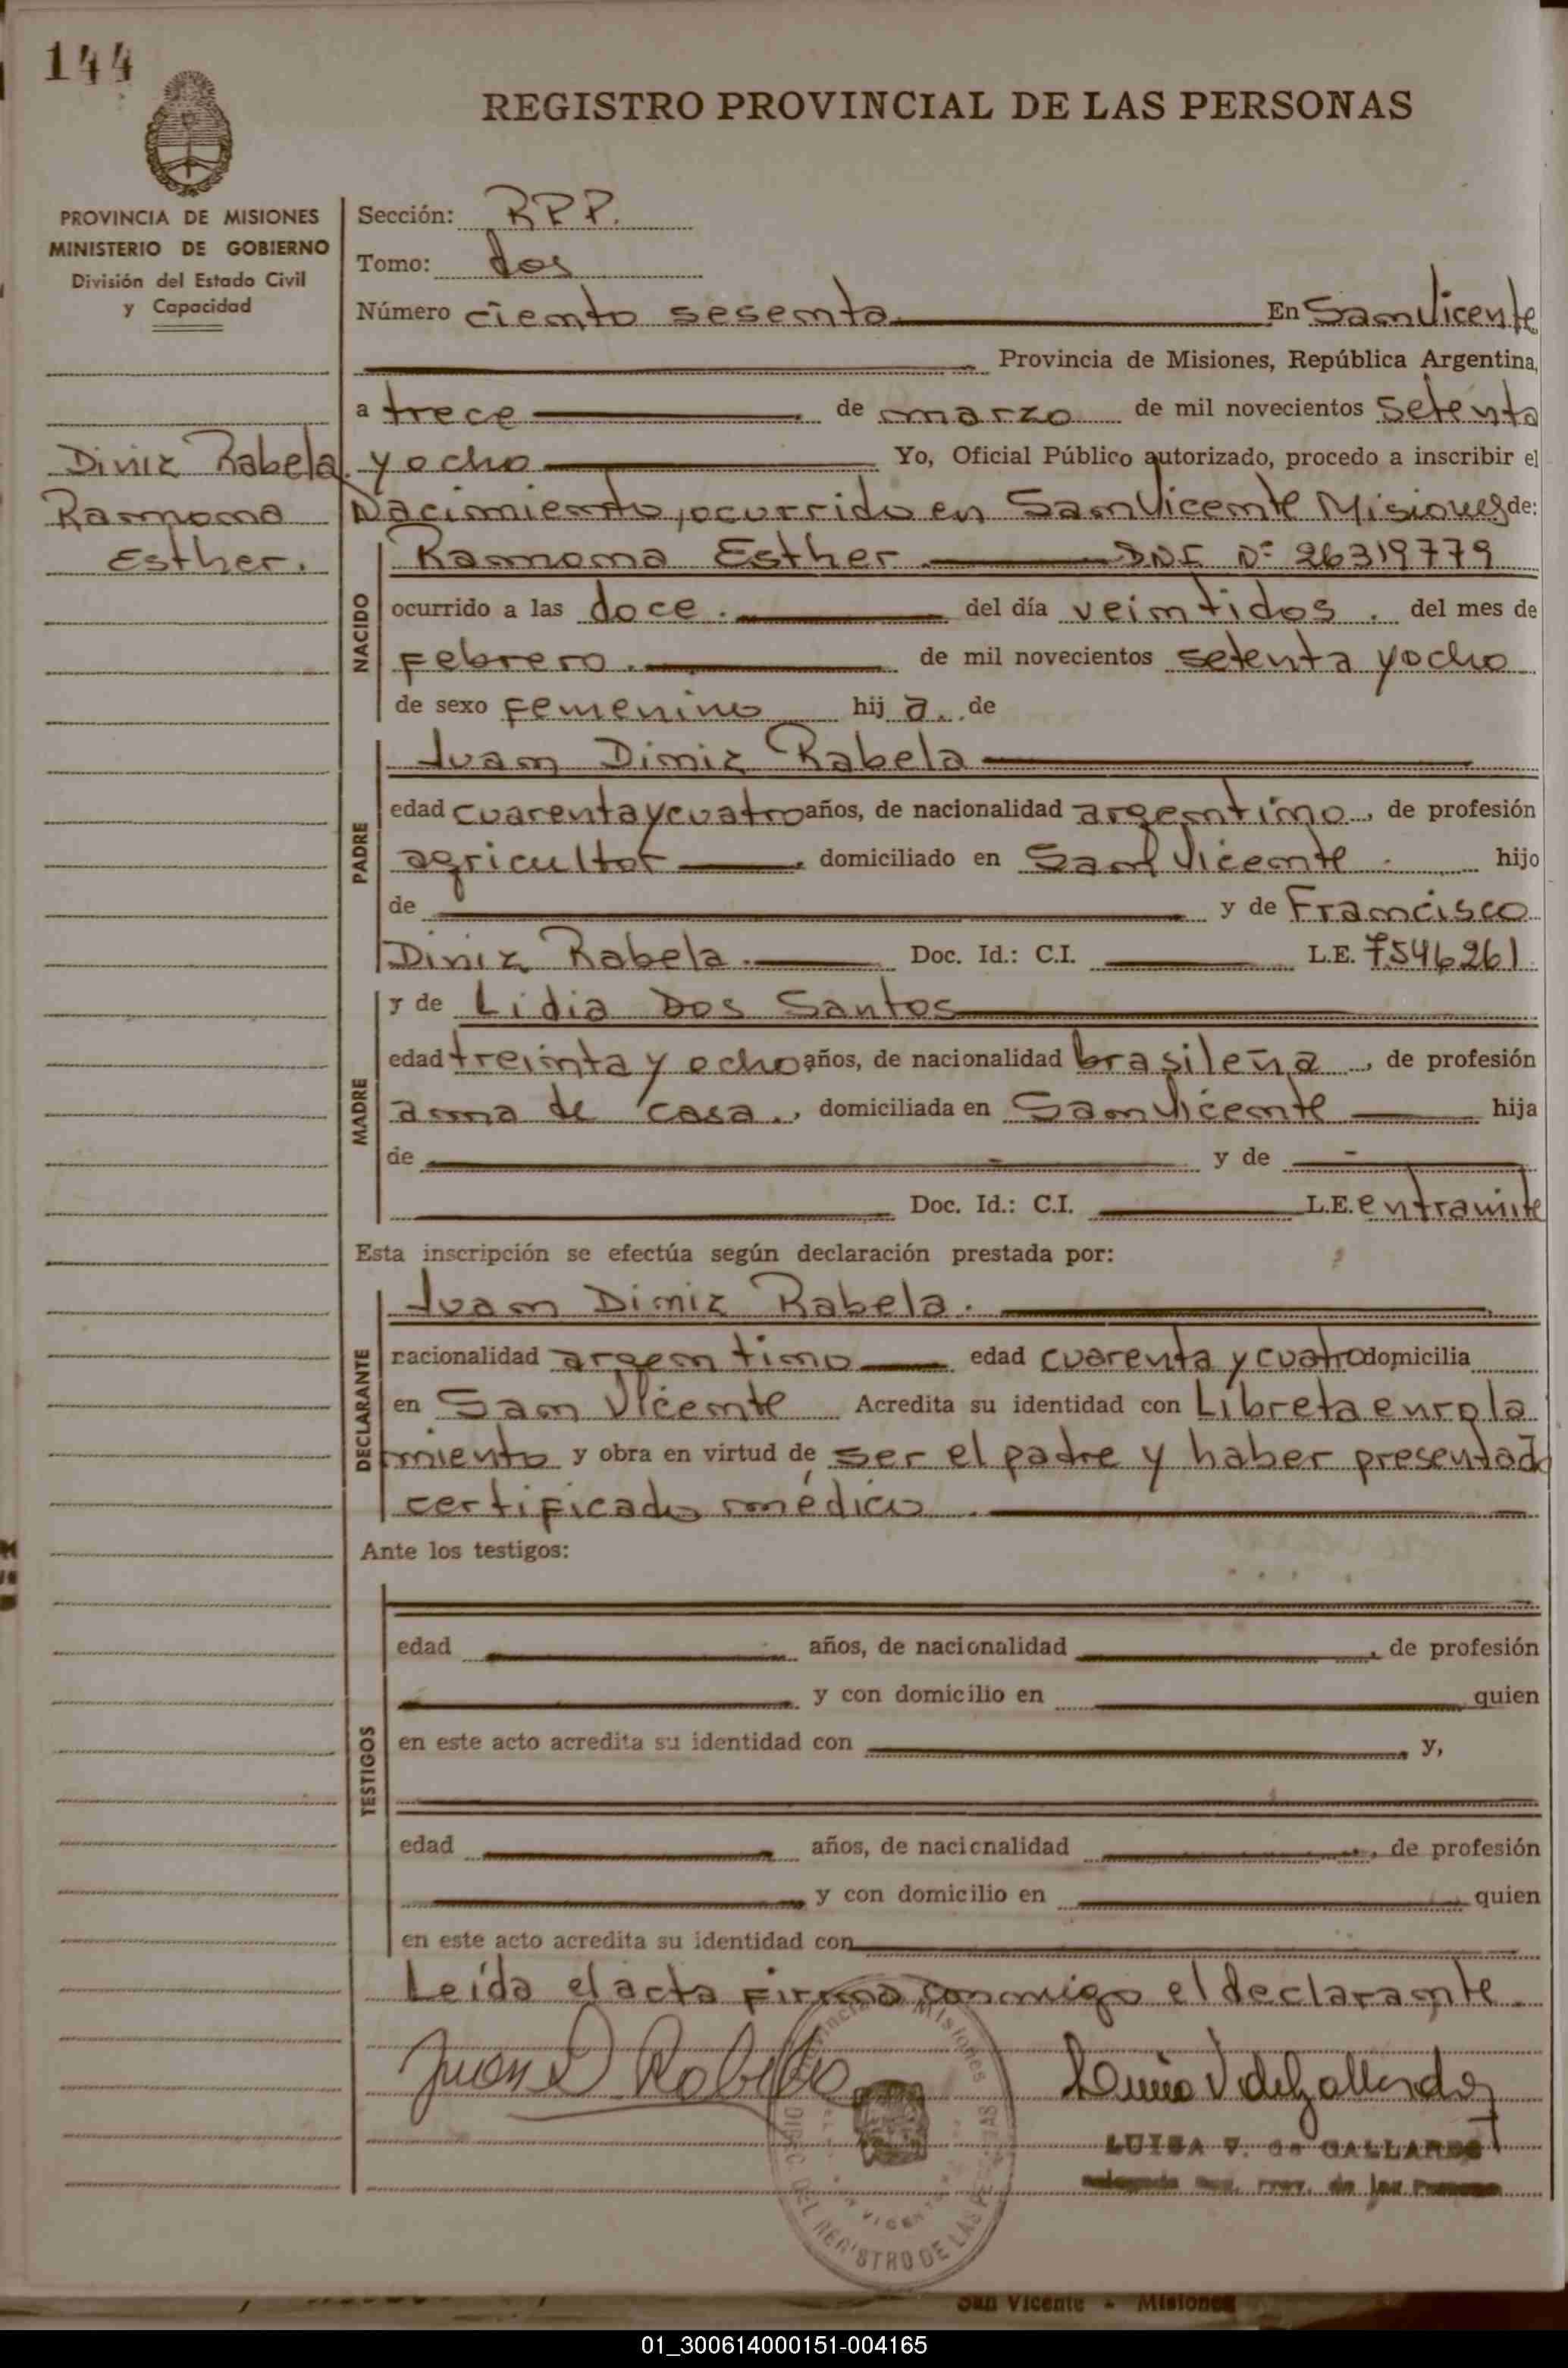 144
REGISTRO PROVINCIAL DE LAS PERSONAS
PROVINCIA DE MISIONES
MINISTERIO DE GOBIERNO
División del Estado Civil
y Capacidad
Diniz Rabela
Ramona
Esther.
Sección: RPP.
Tomo: dos
Número ciento sesenta En San Vicente
Provincia de Misiones, República Argentina,
a trece de marzo de mil novecientos setenta
y ocho Yo, Oficial Público autorizado, procedo a inscribir el
Nacimiento, ocurrido en San Vicente Misiones de:
NACIDO
Ramona Esther DNI Nº 26319779
ocurrido a las doce. del día veintidos. del mes de
Febrero. de mil novecientos setenta y ocho
de sexo femenino hij a. de
PADRE
Juan Diniz Rabela
edad cuarenta y cuatro años, de nacionalidad argentino, de profesión
agricultor, domiciliado en San Vicente. hijo
de y de Francisco
Diniz Rabela. Doc. Id.: C.I. L.E. 7546261
MADRE
y de Lidia Dos Santos
edad treinta y ocho años, de nacionalidad brasileña, de profesión
ama de casa., domiciliada en San Vicente hija
de y de
Doc. Id.: C.I. L.E. en tramite
Esta inscripción se efectúa según declaración prestada por:
DECLARANTE
Juan Diniz Rabela.
nacionalidad argentino edad cuarenta y cuatro domicilia
en San Vicente Acredita su identidad con Libreta enrola
miento y obra en virtud de ser el padre y haber presentado
certificado médico.
Ante los testigos:
TESTIGOS
edad años, de nacionalidad, de profesión
y con domicilio en quien
en este acto acredita su identidad con y,
edad años, de nacionalidad, de profesión
y con domicilio en quien
en este acto acredita su identidad con
Leída el acta firma conmigo el declarante.
Juan D Rabela
V de Gallardo
LUISA V. de GALLARDO
Prov. de las Personas
Provincia Misiones
DEL REGISTRO DE LAS PERSONAS
VICENTE
San Vicente - Misiones
01_300614000151-004165